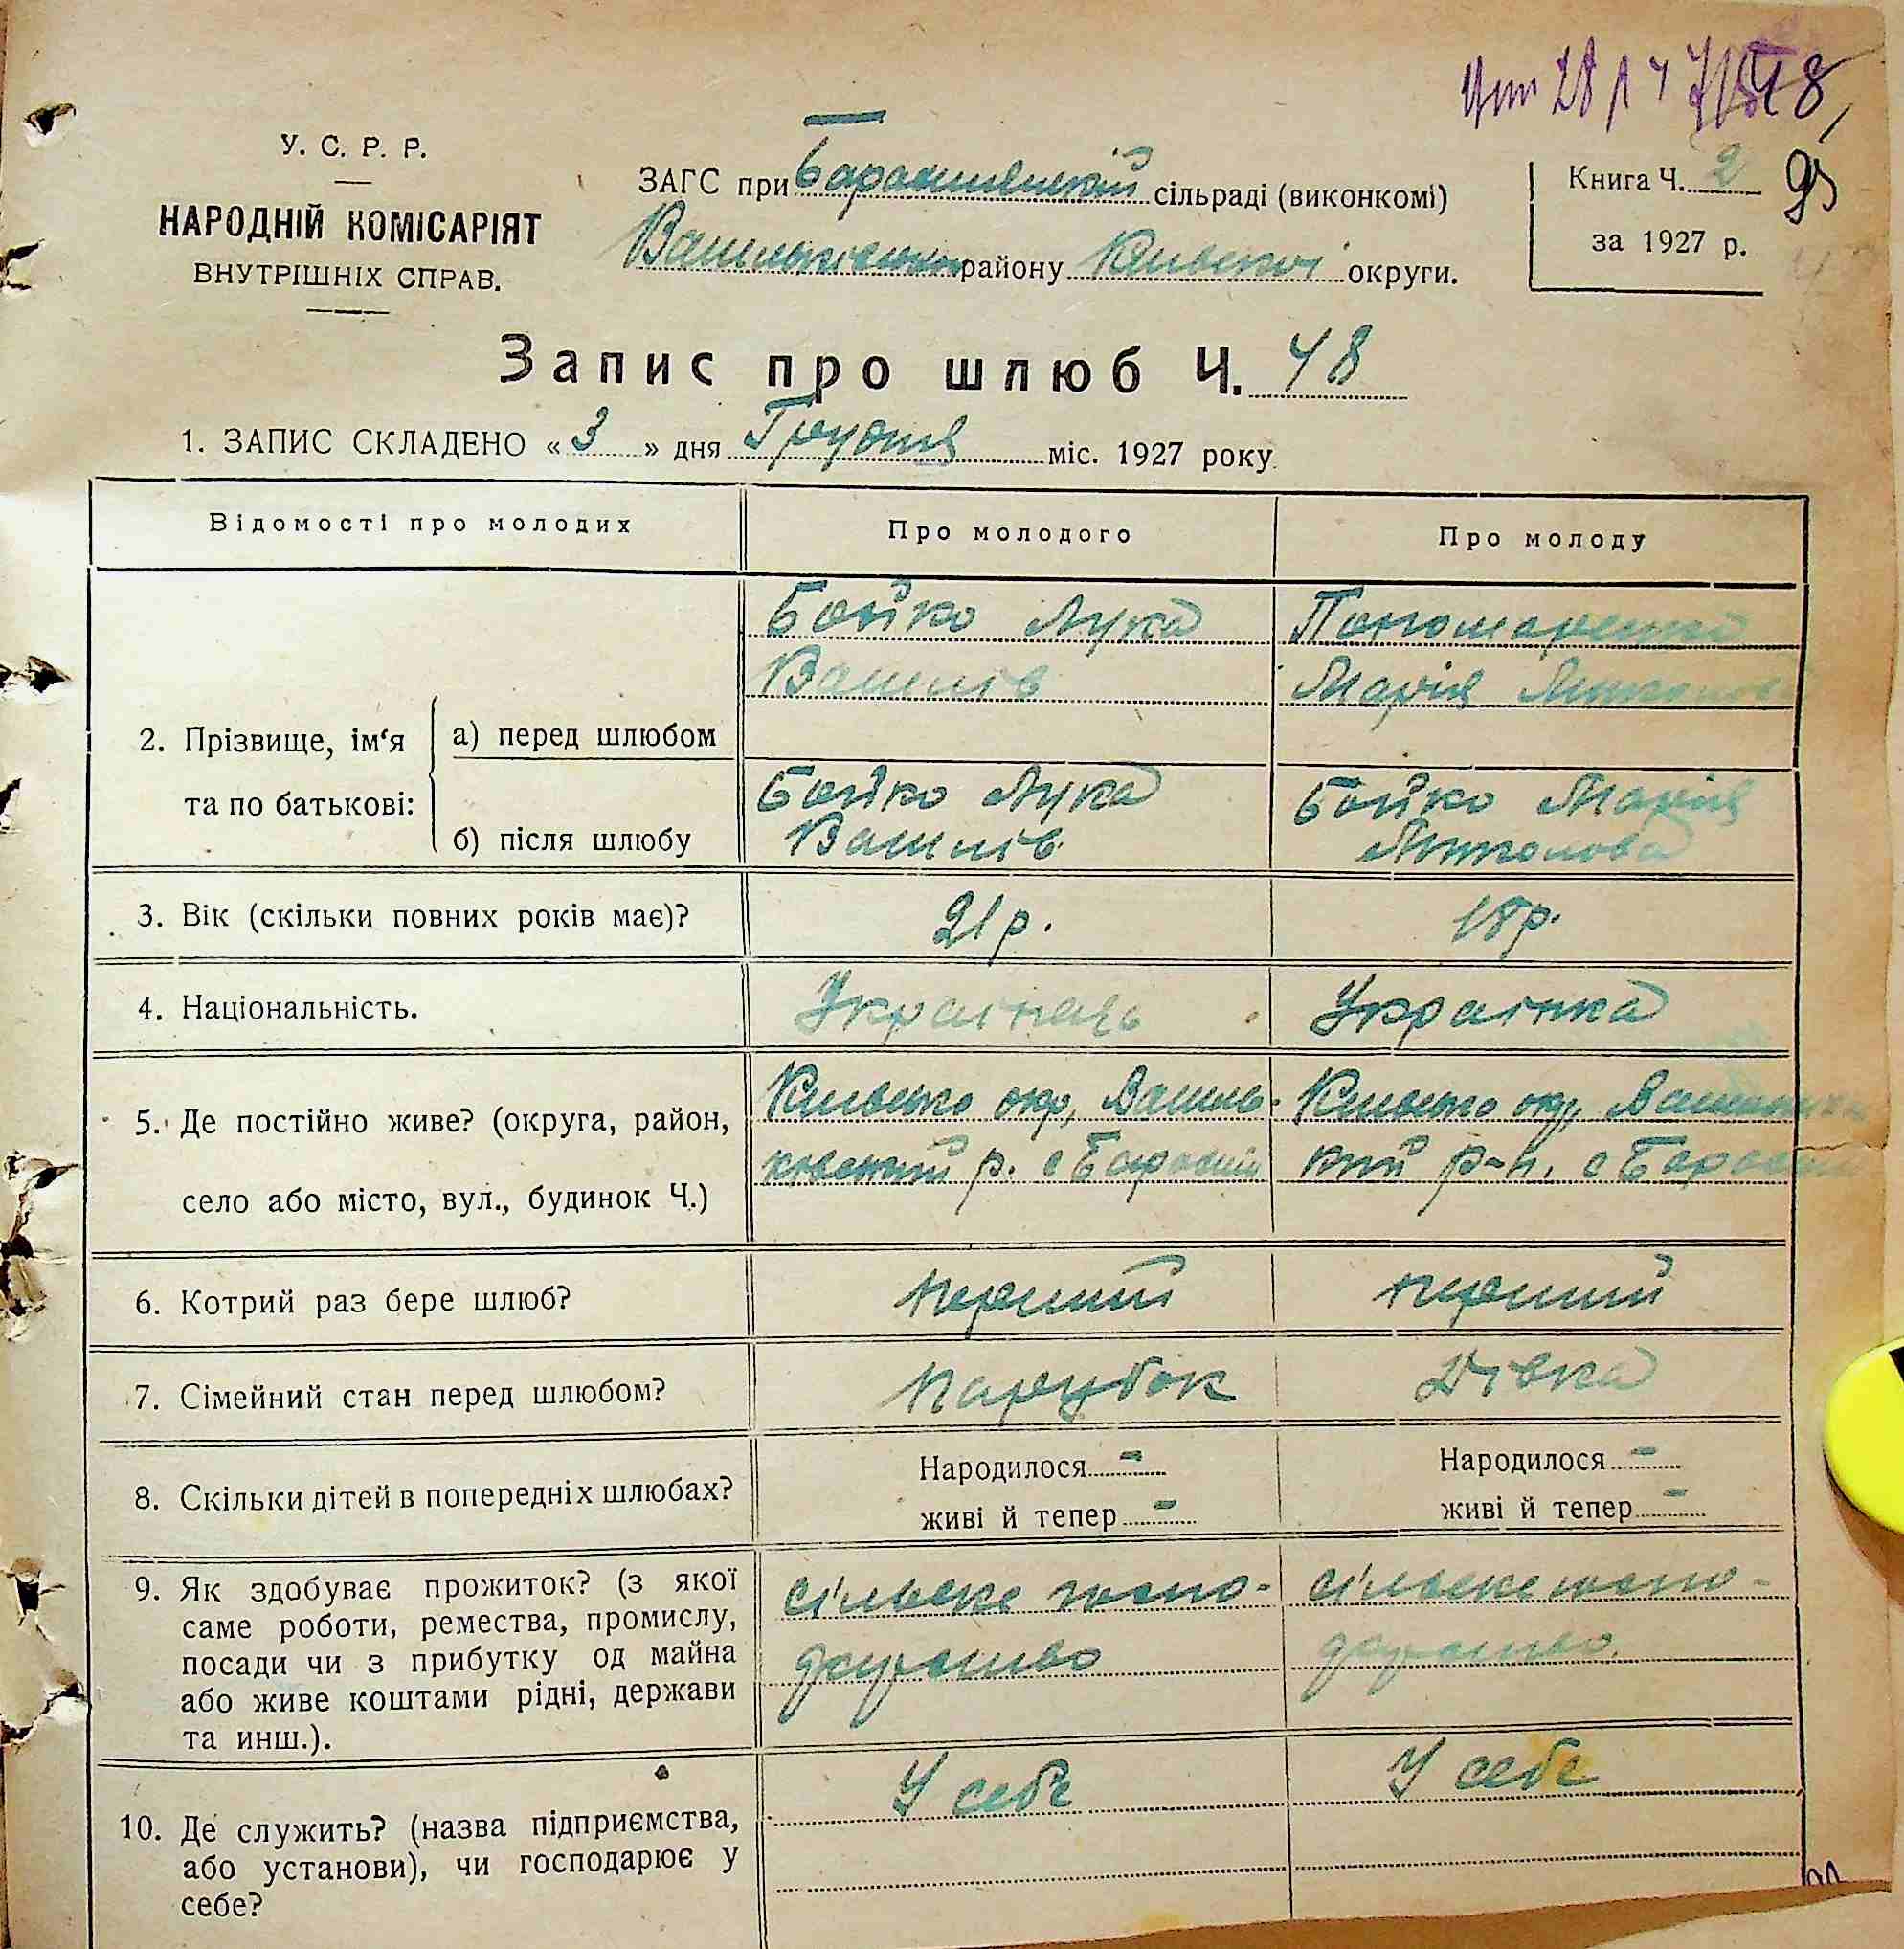 48
У. С. Р. Р.
НАРОДНІЙ КОМІСАРІЯТ
ВНУТРІШНІХ СПРАВ.
ЗАГС при Барахтянській сільраді (виконкомі)
Васильківськ району Київської округи.
Книга Ч. 2
95
за 1927 р.
Запис про шлюб Ч. 48
1. ЗАПИС СКЛАДЕНО « 3 » дня Грудня міс. 1927 року
Відомості про молодих
Про молодого
Про молоду
2. Прізвище, ім‘я та по батькові:
а) перед шлюбом
Бойко Лука
Васил​ів
Пономаренко
Марія
б) після шлюбу
Бойко Лука
Василів
Бойко Марія
3. Вік (скільки повних років має)?
21 р.
18 р.
4. Національність.
Українець
Українка
5. Де постійно живе? (округа, район,
село або місто, вул., будинок Ч.)
Київсько окр, Василь-
ківський р. с
Київсько окр,
кий р-н. с
6. Котрий раз бере шлюб?
перший
перший
7. Сімейний стан перед шлюбом?
парубок
Дівка
8. Скільки дітей в попередніх шлюбах?
Народилося -
живі й тепер -
Народилося -
живі й тепер -
9. Як здобуває прожиток? (з якої
саме роботи, ремества, промислу,
посади чи з прибутку од майна
або живе коштами рідні, держави
та инш.).
сільське госпо-
дарство
сільське госпо-
дарство.
10. Де служить? (назва підприємства,
або установи), чи господарює у
себе?
У себе
У себе